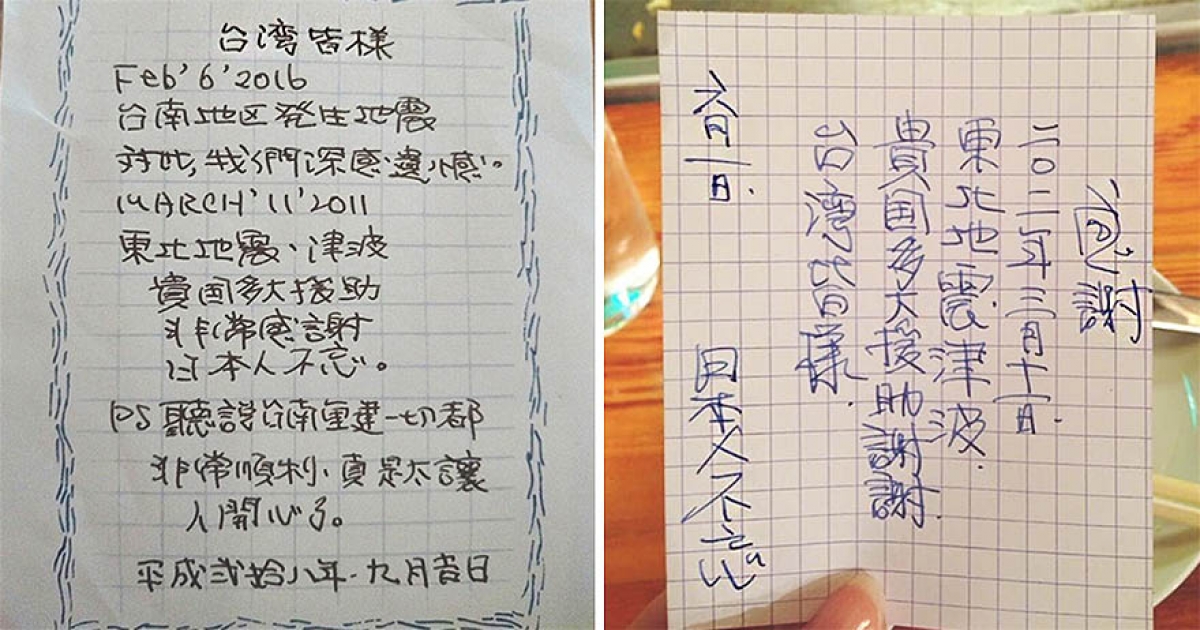 台湾皆様
Feb'6'2016
台南地区発生地震
対此,我們深感遺憾。
MARCH'11'2011
東北地震、津波
貴国多大援助
非常感謝
日本人不忘。
PS 聽説台南重建一切都
非常順利,真是太讓
人開心了。
平成弐拾八年.九月吉日
感謝
二〇一一年三月十一日.
東北地震.津波.
貴国多大援助謝謝.
台湾皆様.
日本人不忘